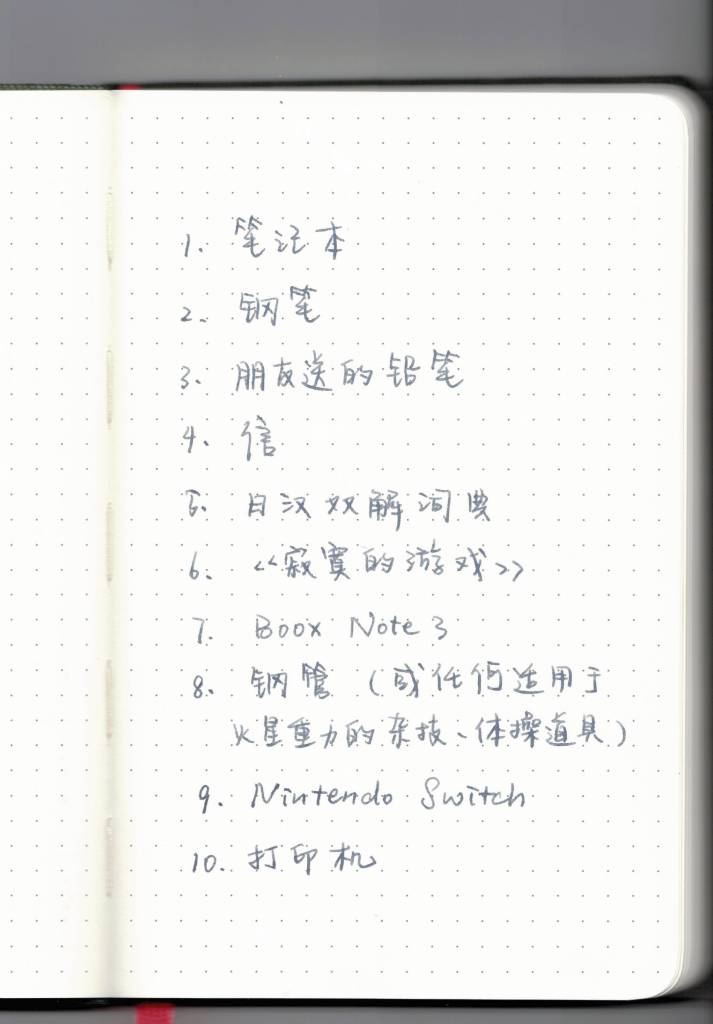 1. 笔记本
2. 钢笔
3. 朋友送的铅笔
4. 信
5. 日汉双解词典
6. 《寂寞的游戏》
7. Boox Note 3
8. 钢管（或任何适用于
火星重力的杂技、体操道具）
9. Nintendo Switch
10. 打印机